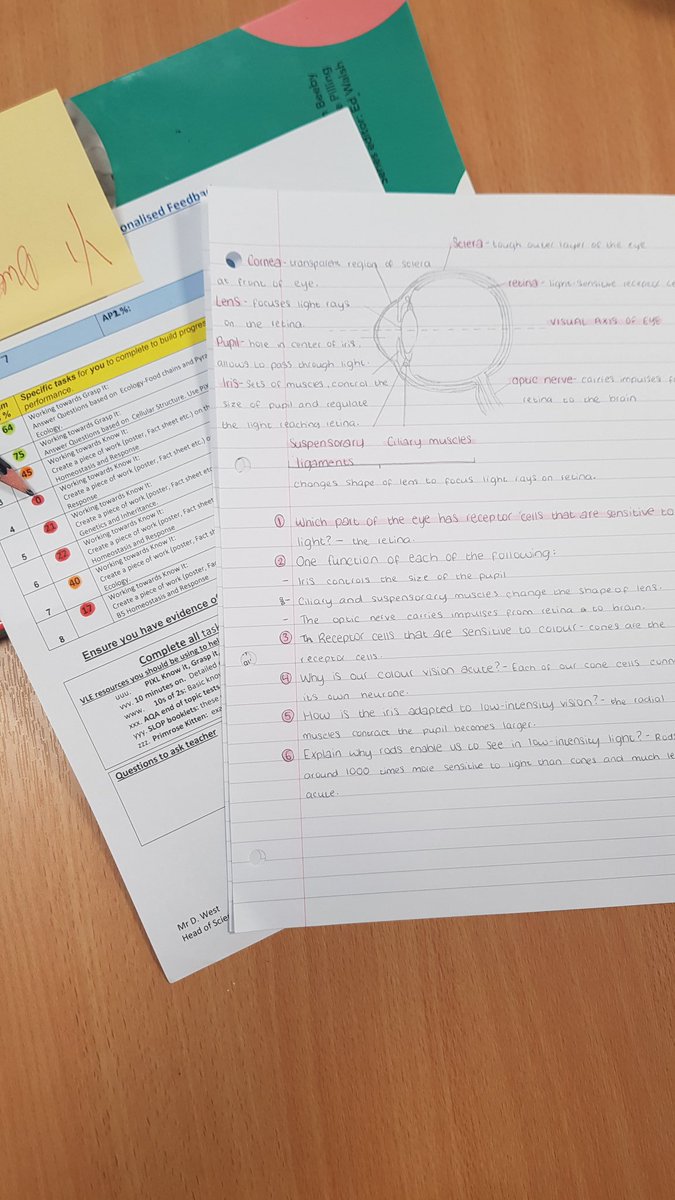 Series editor: Ed Walsh
Pilling
Beeby
onalised Feedba
AP1%:
7
%
Specific tasks for you to complete to build progres
performance.
64
Working towards Grasp it:
Answer Questions based on Ecology Food chains and Pyra
Ecology.
75
Working towards Grasp it:
Answer Questions based on Cellular Structure. Use PIX
45
Working towards Know it:
Create a piece of work (poster, Fact sheet etc.) on th
Homeostasis and Response
0
Working towards Know it:
Create a piece of work (poster, Fact sheet etc.) o
Response
4
21
Working towards Know it:
Create a piece of work (poster, Fact sheet etc
Genetics and Inheritance.
5
22
Working towards Know it:
Create a piece of work (poster, Fact sheet
Homeostasis and Response
6
40
Working towards Know it:
Create a piece of work (poster, Fact sh
Ecology.
7
17
Working towards Know it:
Create a piece of work (poster, Fac
B5 Homeostasis and Response
8
Ensure you have evidence of
Complete all task
VLE resources you should be using to help
uuu. PIXL Know it, Grasp it,
vvv. 10 minutes on. Detailed
www. 10s of 2s: Basic know
xxx. AQA end of topic tests
yyy. SLOP booklets: these
zzz. Primrose Kitten: exa
Questions to ask teacher
Mr D. West
Head of Scien
Sclera - tough outer layer of the eye
Cornea - transparent region of sclera
at front of eye.
retina - light sensitive receptor ce
Lens - focuses light rays
on the retina.
VISUAL AXIS OF EYE
Pupil - hole in center of iris,
allows to pass through light.
Iris - sets of muscles, control the
size of pupil and regulate
the light reaching retina.
optic nerve - carries impulses f
retina to the brain
Suspensorary Ciliary muscles
ligaments
changes shape of lens to focus light rays on retina.
① Which part of the eye has receptor cells that are sensitive to
light? - the retina.
② One function of each of the following:
- Iris controls the size of the pupil
- Ciliary and suspensorary muscles change the shape of lens.
- The optic nerve carries impulses from retina to brain.
③ Receptor cells that are sensitive to colour - cones are the
receptor cells
④ Why is our colour vision acute? - Each of our cone cells conn
its own neurone.
⑤ How is the iris adapted to low-intensity vision? - the radial
muscles contract the pupil becomes larger.
⑥ Explain why rods enable us to see in low-intensity light? - Rods
around 1000 times more sensitive to light than cones and much le
acute.